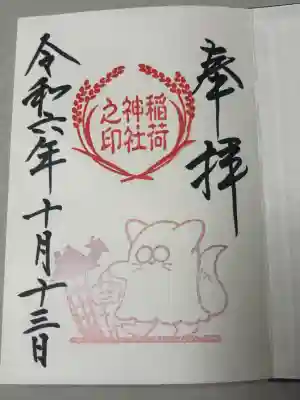 奉拝
稲荷
神社
之印
令和六年十月十三日